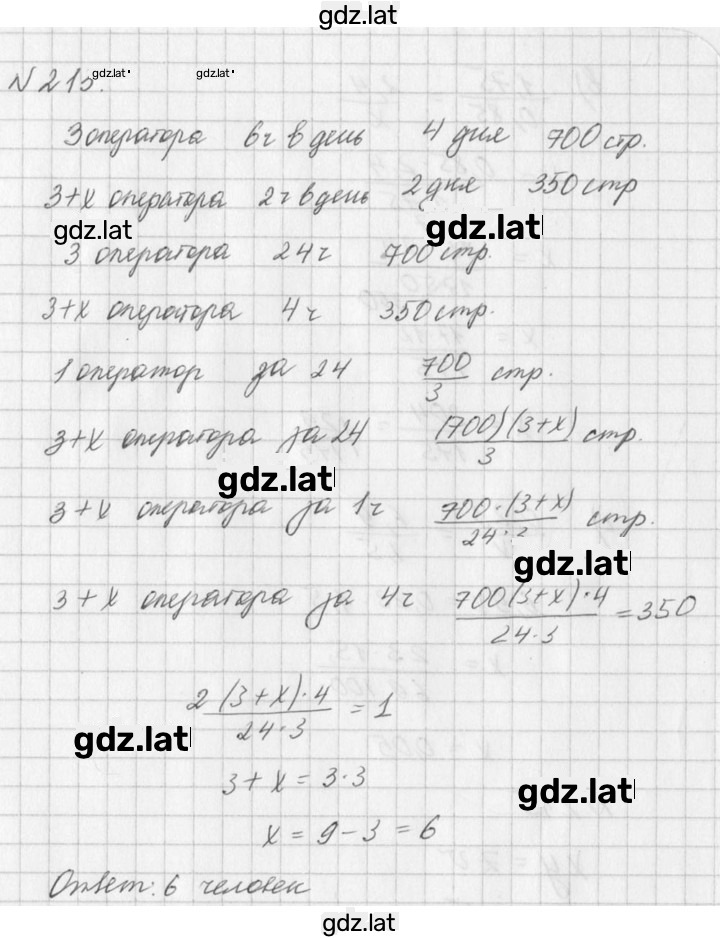 gdz.lat
N 215.
gdz.lat
gdz.lat
3 оператора 6ч в день 4 дня 700 стр.
3+x оператора 2ч в день 2 дня 350 стр
gdz.lat
gdz.lat
3 оператора 24ч 700 стр.
3+x оператора 4ч 350 стр.
1 оператор за 24 700/3 стр.
3+x оператора за 24 (700)(3+x)/3 стр.
gdz.lat
3+x оператора за 1ч 700·(3+x)/24·2 стр.
gdz.lat
3+x оператора за 4ч 700(3+x)·4/24·3 =350
2(3+x)·4/24·3 = 1
gdz.lat
3+x = 3·3
gdz.lat
x = 9-3 = 6
Ответ: 6 человек
gdz.lat